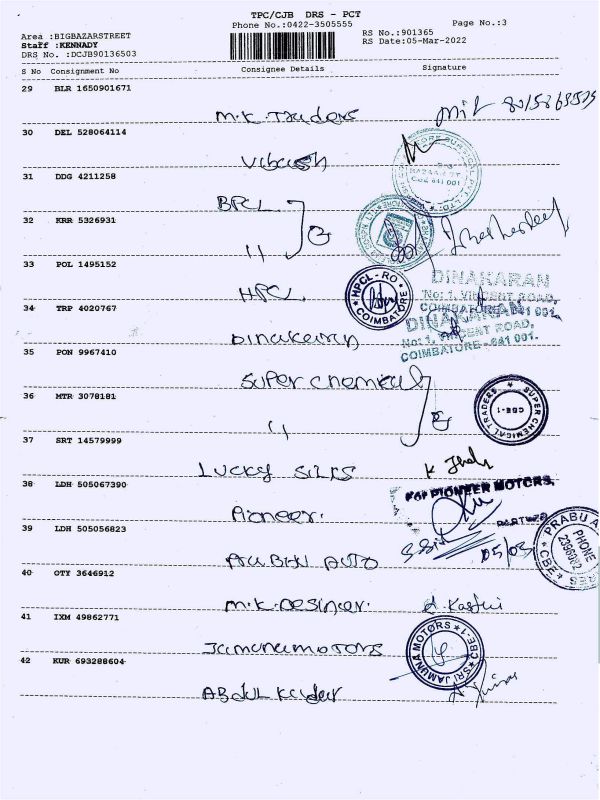 TPC/CJB DRS - PCT
Phone No.:0422-3505555
Page No.:3
Area :BIGBAZARSTREET
RS No.:901365
Staff :KENNADY
RS Date:05-Mar-2022
DRS No. :DCJB90136503
S No Consignment No Consignee Details Signature
29 BLR 1650901671
M.K. Traders
30 DEL 528064114
Vibash
31 DDG 4211258
BAZAAR ST
CBE 641 001
BPCL
32 KRR 5326931
"
33 POL 1495152
HPCL
HPCL-RO
COIMBATORE
DINAKARAN
No: 1, VINCENT ROAD,
COIMBATORE-641 001.
34 TRP 4020767
DINAKARAN
No: 1, VINCENT ROAD,
COIMBATORE-641 001.
Dinakaran
35 PON 9967410
Super chemical
36 MTR 3078181
"
SUPER CHEMICAL TRADERS
CBE-1
37 SRT 14579999
Lucky Silks
38 LDH 505067390
For PIONEER MOTORS,
PARTNER
Pioneer.
39 LDH 505056823
05/03
PRABU A
PHONE
CBE
Auto
40 OTY 3646912
M.K. Desiner.
41 IXM 49862771
Jamunamotors
SRI JAMUNA MOTORS
CBE-1
42 KUR 693288604
Abdul Kader